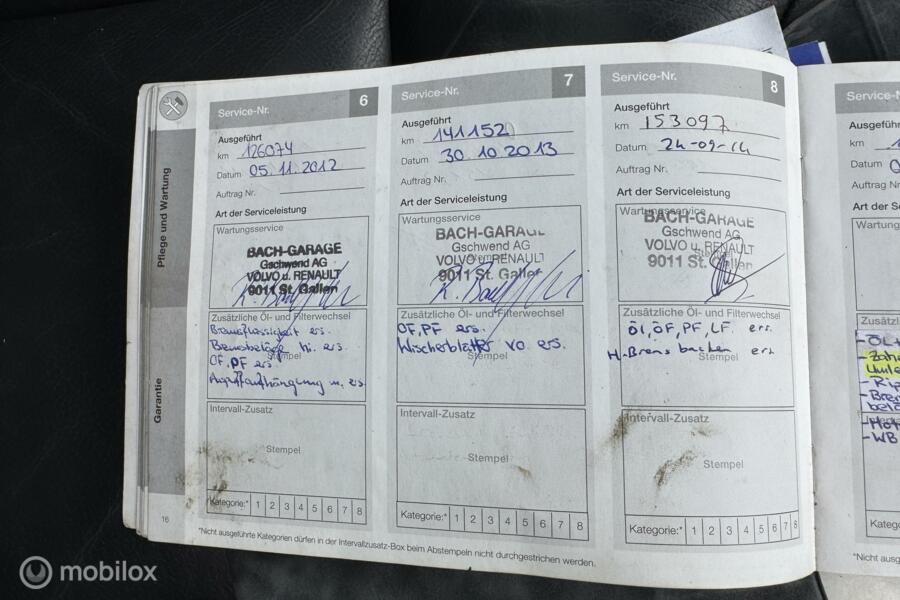 Pflege und Wartung
Garantie
16
Service-Nr. 6
Ausgeführt
km 126074
Datum 05.11.2012
Auftrag Nr.
Art der Serviceleistung
Wartungsservice
BACH-GARAGE
Gschwend AG
VOLVO u. RENAULT
9011 St. Gallen
Zusätzliche Öl- und Filterwechsel
Bremsflüssigkeit ers.
Bremsbeläge hi. ers.
OF, PF ers.
Stempel
Auspuffaufhängung m. ers.
Intervall-Zusatz
Stempel
Kategorie:* 1 2 3 4 5 6 7 8
Service-Nr. 7
Ausgeführt
km 141152
Datum 30.10.2013
Auftrag Nr.
Art der Serviceleistung
Wartungsservice
BACH-GARAGE
Gschwend AG
Stempel
VOLVO u. RENAULT
9011 St. Gallen
Zusätzliche Öl- und Filterwechsel
OF, PF ers.
Wischerblätter vo. ers.
Stempel
Intervall-Zusatz
Stempel
Kategorie:* 1 2 3 4 5 6 7 8
Service-Nr. 8
Ausgeführt
km 153097
Datum 24-09-14
Auftrag Nr.
Art der Serviceleistung
Wartungsservice
BACH-GARAGE
Gschwend AG
VOLVO u. RENAULT
Stempel
9011 St. Gallen
Zusätzliche Öl- und Filterwechsel
Öl, ÖF, PF, LF. ers.
H-Brems backen ers
Stempel
Intervall-Zusatz
Stempel
Kategorie:* 1 2 3 4 5 6 7 8
*Nicht ausgeführte Kategorien dürfen in der Intervallzusatz-Box beim Abstempeln nicht durchgestrichen werden.
Service-N
Ausgeführ
km
Datum
Auftrag N
Art der Se
Wartung
Zusätzli
- WB
Katego
*Nicht ausg
mobilox